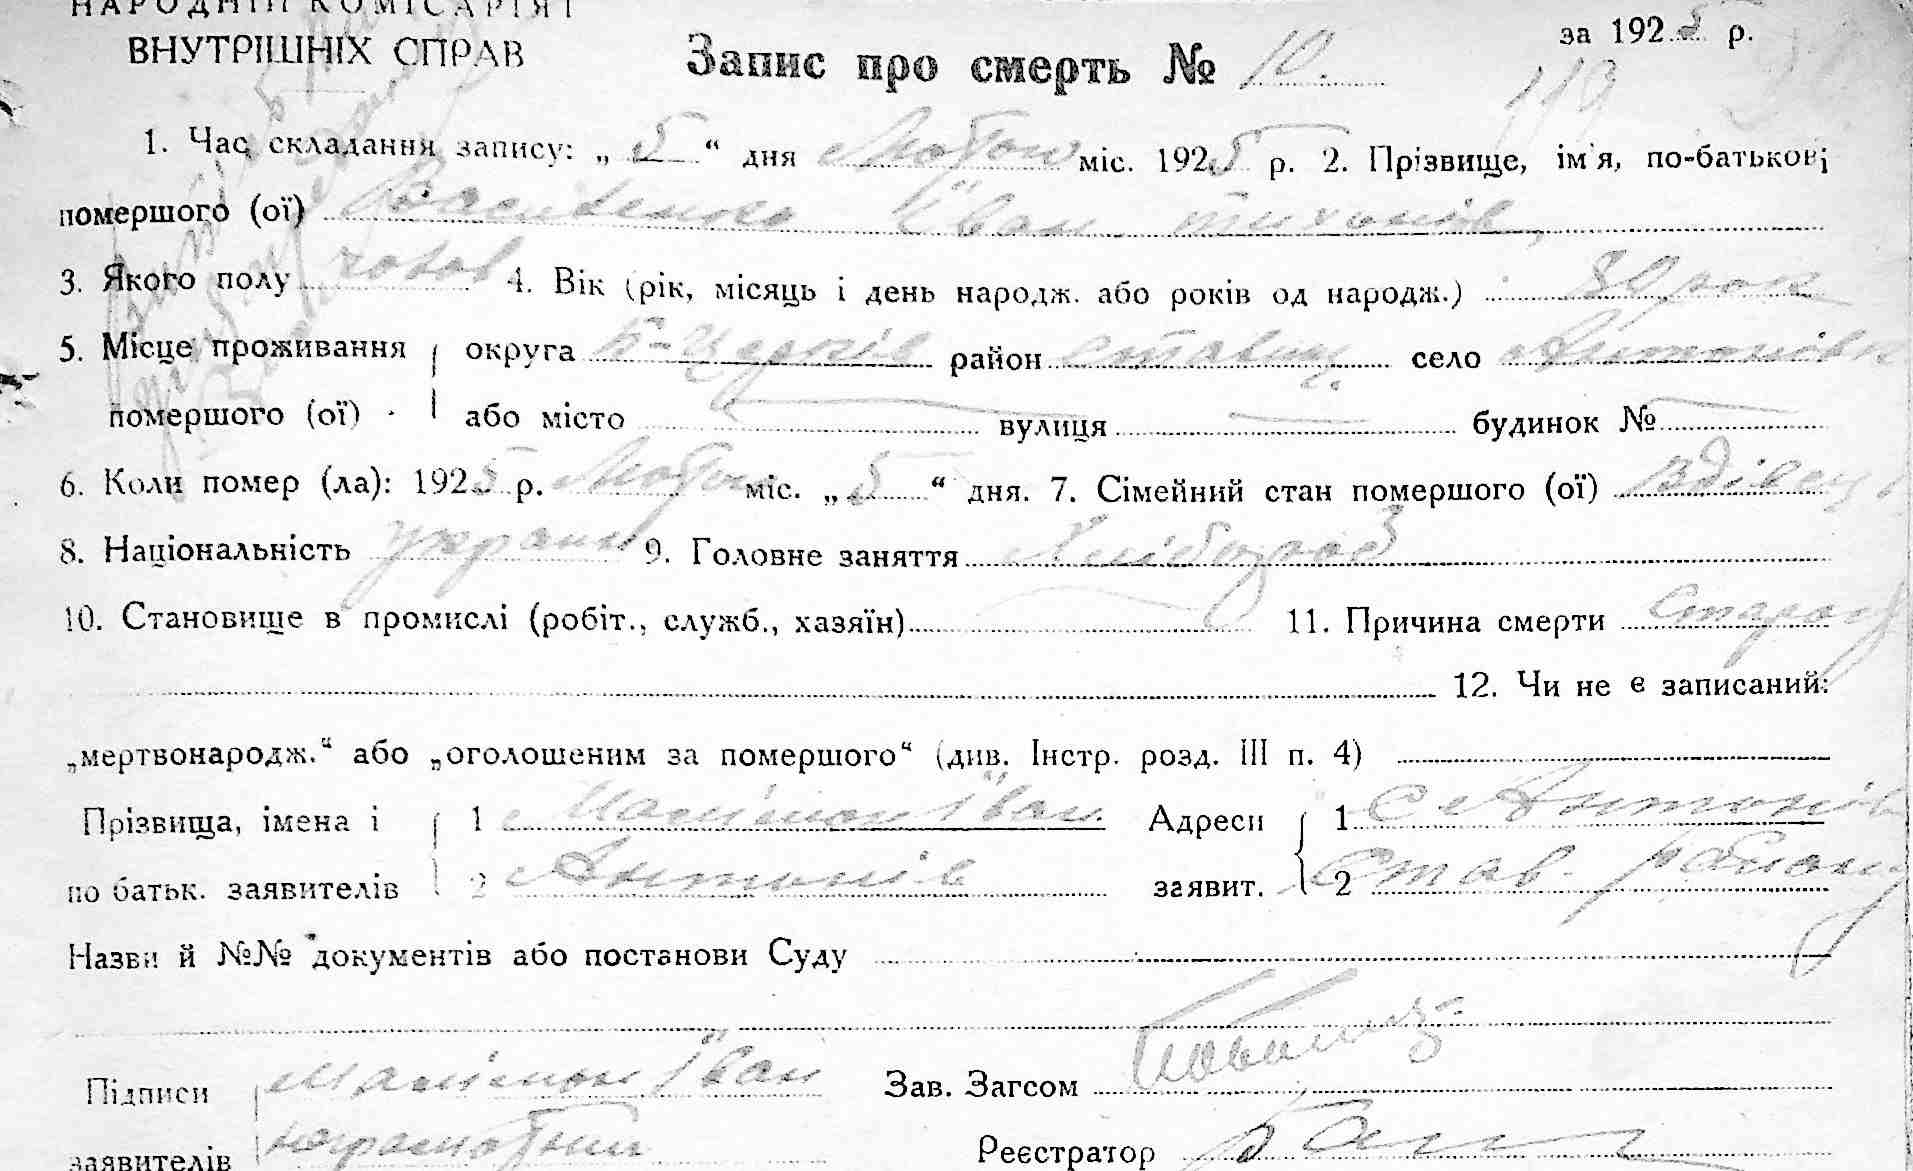 НАРОДНІЙ КОМІСАРІЯТ
ВНУТРІШНІХ СПРАВ
за 1925 р.
Запис про смерть № 10.
119
1. Час складання запису: „ 5 “ дня Лютого міс. 1925 р. 2. Прізвище, ім'я, по-батькові
помершого (ої) Василенко Іван Тихонів,
3. Якого полу чолов 4. Вік (рік, місяць і день народж. або років од народж.) 80 рок
5. Місце проживання округа Б-Церків район Ставищ. село Антонівка
помершого (ої) або місто вулиця будинок №
6. Коли помер (ла): 1925 р. Лютого міс. „ 5 “ дня. 7. Сімейний стан помершого (ої) вдівець
8. Національність україн 9. Головне заняття Хлібороб
10. Становище в промислі (робіт., служб., хазяїн) 11. Причина смерти Старость
12. Чи не є записаний:
„мертвонародж.“ або „оголошеним за помершого“ (див. Інстр. розд. III п. 4)
Прізвища, імена і 1 Іван Адреси 1 с Антонів
по батьк. заявителів 2 Антонів заявит. 2 Став. району
Назви й №№ документів або постанови Суду
Підписи Іван Зав. Загсом
заявителів неграмотний Реєстратор